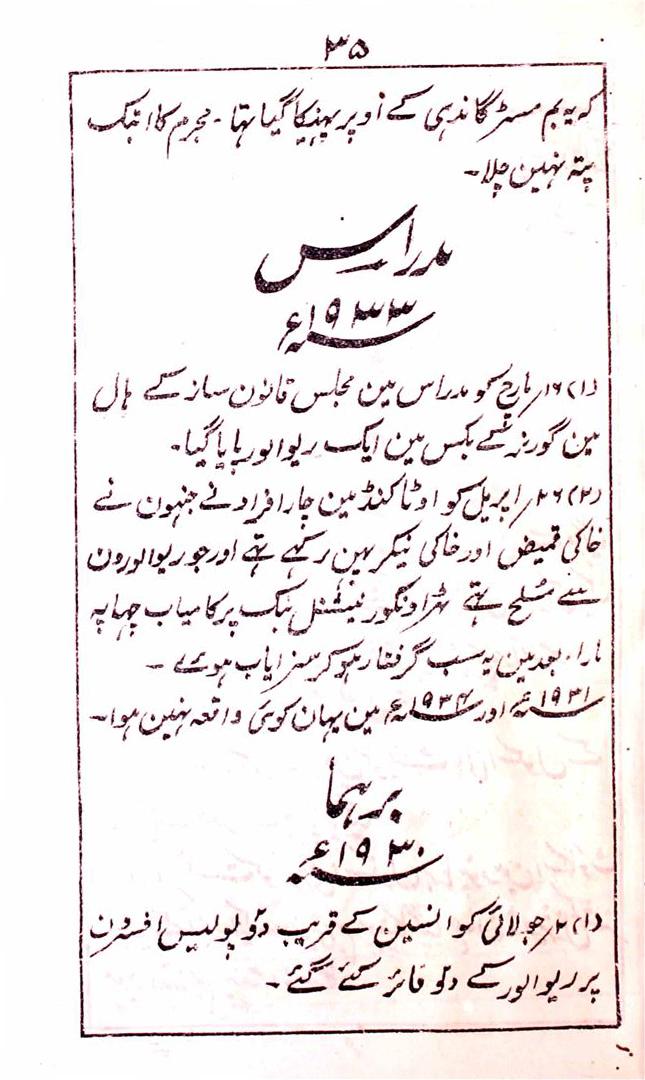 ۳۵
کہ یہ بم مسٹر گاندہی کے اوپر پہینکا گیا تہا ۔ مجرم کا ابتک
پتہ نہین چلا ۔
مدراس
۱۹۳۳ء
(۱) ۱۶/ مارچ کو مدراس مین مجلس قانون ساز کے ہال
مین گورنر کے بکس مین ایک ریوالور پایا گیا ۔
(۲) ۲۶/ اپریل کو اوٹاکنڈ مین چار افراد نے جنہون نے
خاکی قمیض اور خاکی نیکر پہن رکہے تہے اور جو ریوالورون
سے مسلح تہے ٹراونکور نیشنل بنک پر کامیاب چہاپہ
مارا ۔ بعد مین یہ سب گرفتار ہو کر سزایاب ہوے ۔
۱۹۳۱ء اور ۱۹۳۴ء مین یہان کوی واقعہ نہین ہوا ۔
برہما
۱۹۳۰ء
(۱) ۲/ جولائی کو انسین کے قریب دو پولیس افسرون
پر ریوالور کے دو فائر کئے گئے ۔